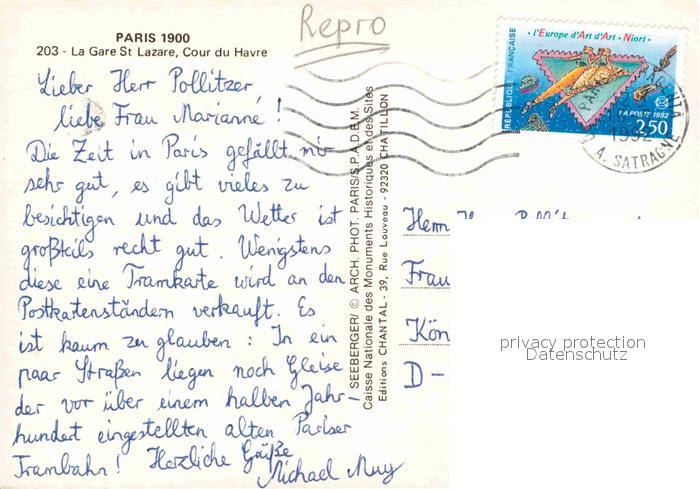 Repro
PARIS 1900
203 - La Gare St Lazare, Cour du Havre
Lieber Herr Pollitzer
liebe Frau Marianne !
Die Zeit in Paris gefällt mir
sehr gut, es gibt vieles zu
besichtigen und das Wetter ist
großteils recht gut. Wenigstens
diese eine Tramkarte wird an den
Postkartenständern verkauft. Es
ist kaum zu glauben : In ein
paar Straßen liegen noch Gleise
der vor über einem halben Jahr-
hundert eingestellten alten Pariser
Trambahn ! Herzliche Grüße
Michael Muy
SEEBERGER/ © ARCH. PHOT. PARIS/S.P.A.D.E.M.
Caisse Nationale des Monuments Historiques et des Sites
Editions CHANTAL - 39, Rue Louveau - 92320 CHATILLON
• l'Europe d'Art d'Art • Niort •
RÉPUBLIQUE FRANÇAISE
LA POSTE 1992
2,50
PARIS
1992
A. SATRAGNE
Herrn
Frau
Kön
D -
privacy protection
Datenschutz